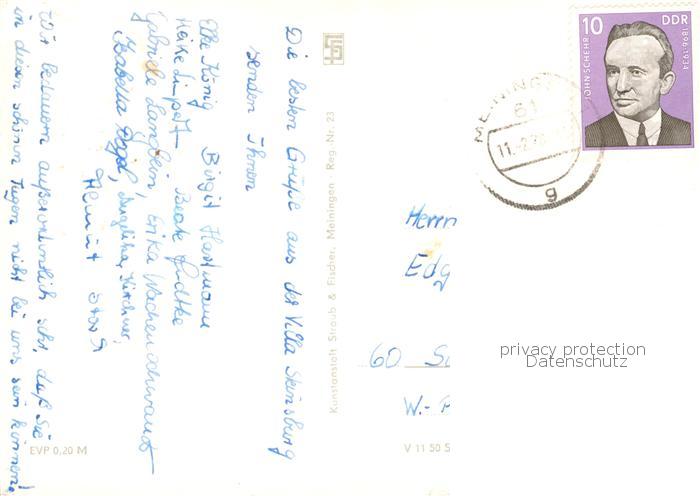 Die besten Grüße aus der Villa Steinsburg
senden Ihnen
Elke König Birgit Hartmann
Heike Limpert Beate Lüdtke
Gabriele Langbein, Erika Wachenschwanz
Isabella Vogel, Angelika Kirchner,
Helmut
Wir bedauern außerordentlich sehr, daß Sie
in diesen schönen Tagen nicht bei uns sein können!
EVP 0,20 M
Kunstanstalt Straub & Fischer, Meiningen Reg.-Nr. 23
V 11 50 S
10 DDR
JOHN SCHEHR
1896-1934
MEINING
61
11.-2.
g
Herrn
Edg
60 Su
W.-P
privacy protection
Datenschutz